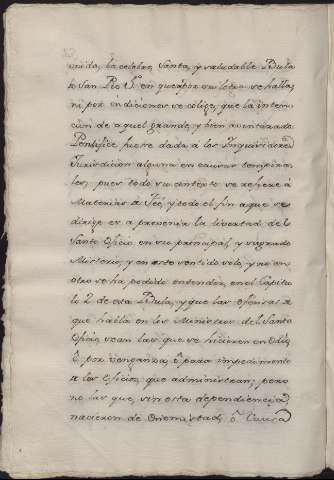 unido, la celebre, Santa, y saludable Bula
de San Pio V.º en querpo su letra se halla,
ni por indiciones se colige, que la inten-
cion de aquel grande, y bien aventurado
Pontifice fuese dada a los Inquisidores
Jurisdicion alguna en causas tempora-
les, pues todo su contexto se refiere à
Materias de Feè, y todo el fin a que se
dirige es a preservar la libertad del
Santo Oficio en su principal, y sagrado
Misterio, y en este sentido solo, y no en
otro se ha podido entender, en el Capitu-
lo 2 de esta Bula, y que las ofensas de
que habla en los Ministros del Santo
Oficio, sean las que se hicieren en Odio,
ò por venganza, ò para impedimento
a los Oficios, que administran; pero
no las que, sin esta dependiencia,
nacieron de Enemistad, ò Causa